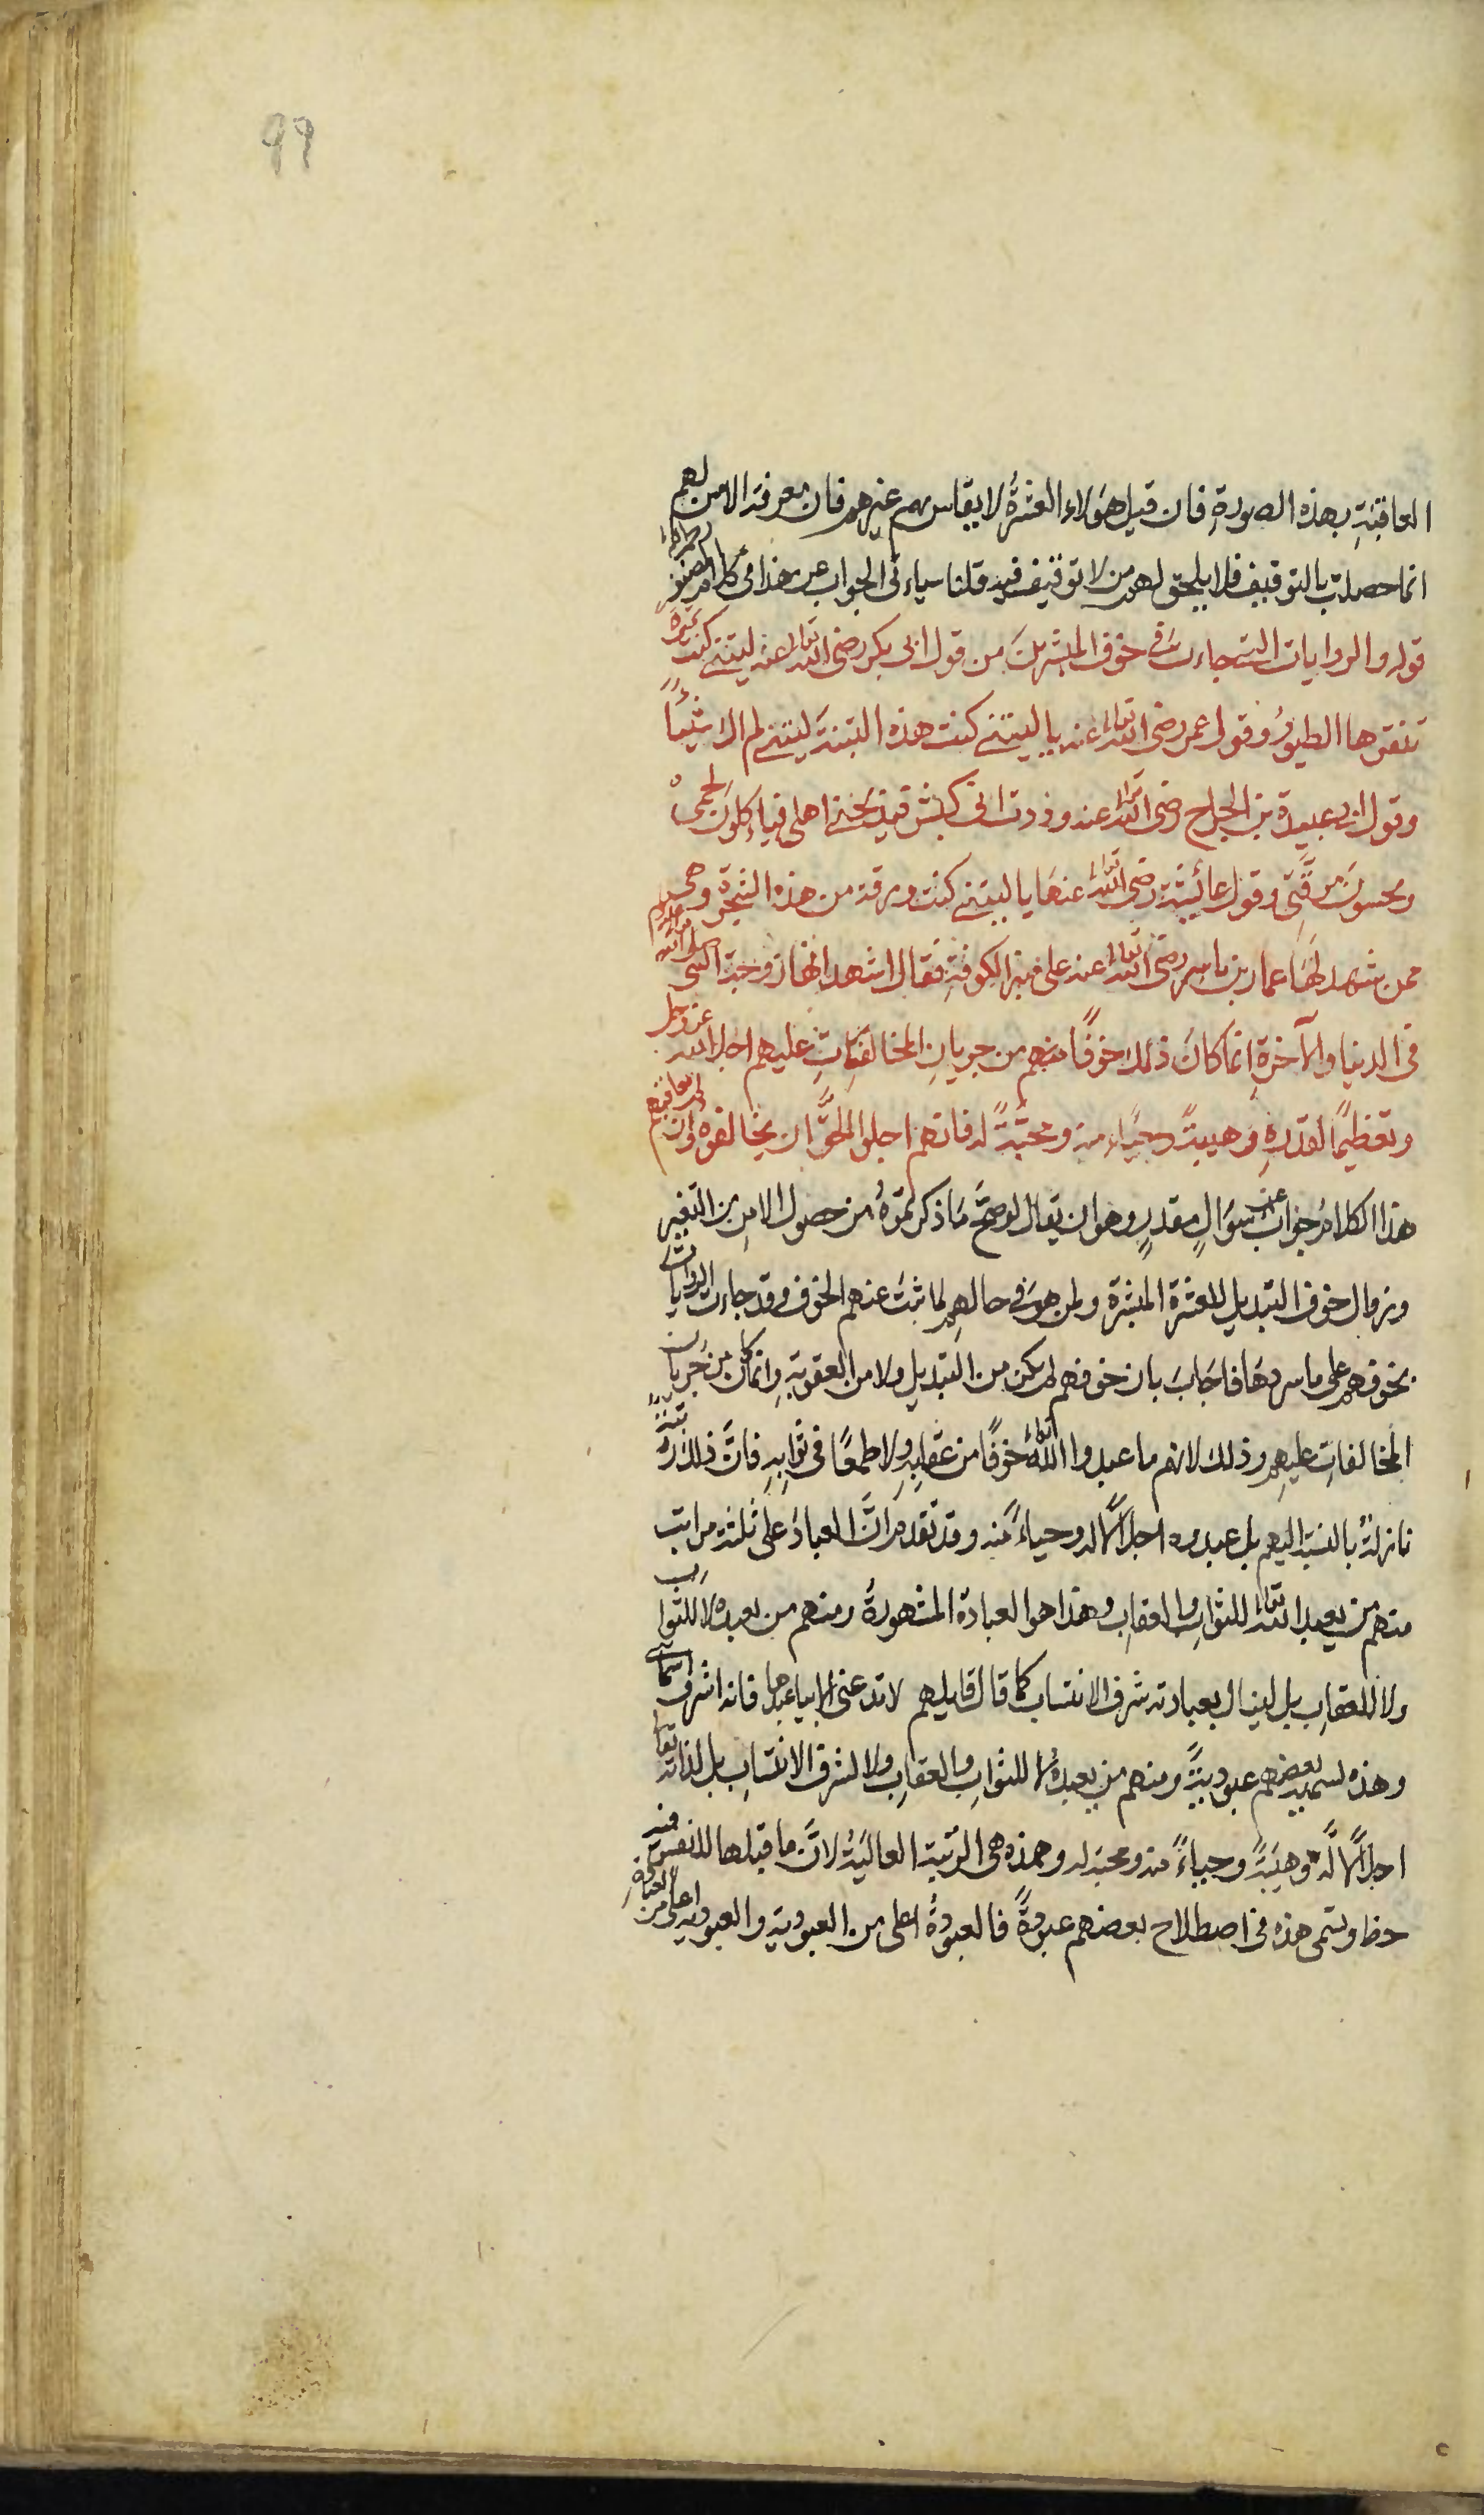 99
العاقبةِ بهذه الصورةِ فان قيل هؤلاء العشرةُ لا يقاس بهم غيرهم فان معرفة الامن لهم
انما حصلت بالتوقيف فلا يلحق لهم من لا توقيف فيه قلنا سياءتى الجواب عن هذا فى كلام المصنف
قوله والروايات التى جاءت فى خوف المبشرين من قول ابى بكر رضى الله تعالى عنه ليتنى كنت تمرةً
تنقرها الطيورُ وقول عمر رضى الله تعالى عنه يا ليتنى كنت هذه التبنة ليتنى لم اك شيئًا
وقول ابى عبيدة بن الجراح رضى الله تعالى عنه وددت انى كبش فيذبحنى اهلى فياءكلون لحمى
ويحسون مرقتى وقول عائشة رضى الله تعالى عنها يا ليتنى كنت ورقة من هذه الشجرة وهى
ممن شهد لها عمار بن ياسر رضى الله تعالى عنه على منبر الكوفةِ فقال اشهد انها زوجة النبى صلى الله عليه وسلم
فى الدنيا والآخرةِ انما كان ذلك خوفًا منهم من جريانِ المخالفاتِ عليهم اجلالا لله عز وجل
وتعظيمًا لقدرهِ وهيبةً وحياءً منه ومحبّةً له فانهم اجلوا الحقَّ ان يخالفوه وان لم يعاقبهم
هذا الكلامُ جوابٌ عن سؤالٍ مقدرٍ وهو ان يقال لو صحَّ ما ذكرتموهُ من حصول الامنِ من التغير
وزوال خوف التبديلِ للعشرة المبشرة ولمن هو فى حالهم لما ثبت عنهم الخوف وقد جاءت الروايات
بخوفهم على ما سردها فاجابَ بان خوفهم لم يكن من التبديلِ ولا من العقوبةِ وانما كان من جَريان
المخالفاتِ عليهم وذلك لانهم ما عبدوا الله تعالى خوفًا من عقابِهِ ولا طمعًا فى ثوابِهِ فانَّ ذلك رتبةٌ
نازلةٌ بالنسبة اليهم بل عبدوه اجلالًا له وحياءً منه وقد تقدم انَّ العبادَ على ثلثة مراتب
منهم من يعبد الله تعالى للثوابِ والعقابِ وهذا هو العبادة المشهورةُ ومنهم من يعبده لا للثواب
ولا للعقابِ بل لينال بعبادته شرف الانتساب كما قال قايلهم لا تدعنى الا بيا عبدها فانه اشرف اسمائى
وهذه يسميه بعضهم عبوديةً ومنهم من يعبدهُ لا للثوابِ والعقابِ ولا لشرف الانتسابِ بل لذاته تعالى
اجلالًا له وهيبَةً وحياءً منه ومحبة له وهذه هى الرتبة العاليَةُ لانَّ ما قبلها للنفس فيه
حظ وتسمى هذه فى اصطلاح بعضهم عبودةً فالعبودةُ اعلى من العبوديةِ والعبوديةِ اعلى من العبادةِ